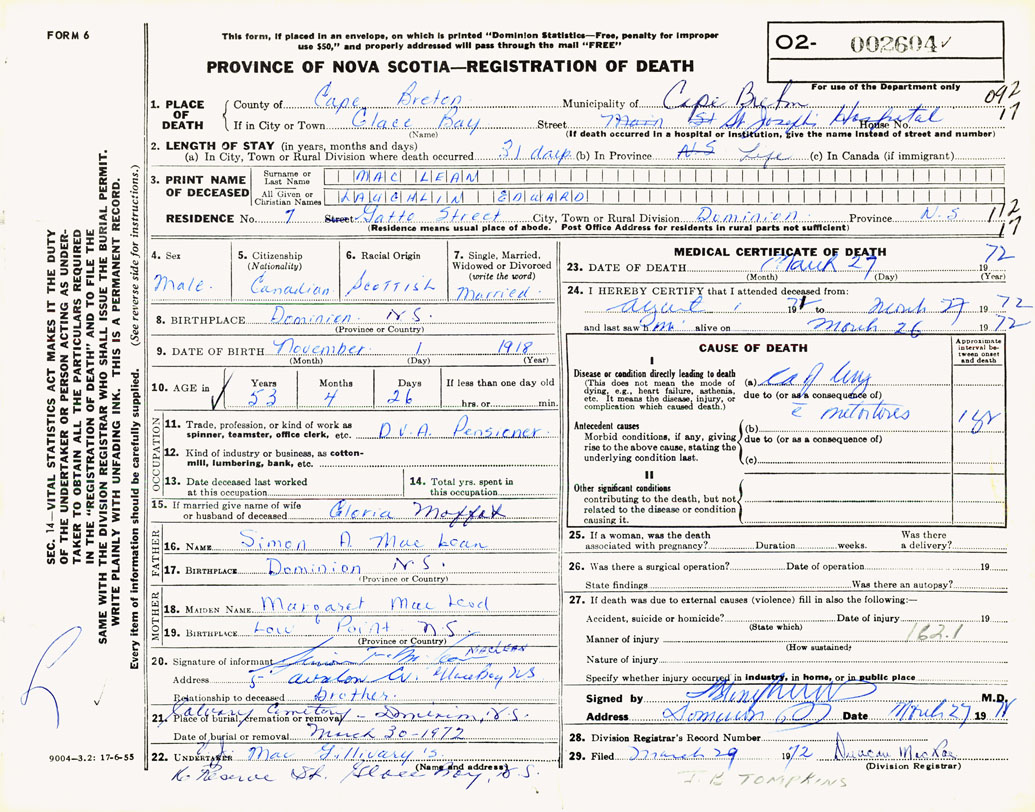 FORM 6
This form, if placed in an envelope, on which is printed "Dominion Statistics—Free, penalty for improper
use $50," and properly addressed will pass through the mail "FREE"
PROVINCE OF NOVA SCOTIA—REGISTRATION OF DEATH
O2- 002604
For use of the Department only
092
17
SEC. 14—VITAL STATISTICS ACT MAKES IT THE DUTY
OF THE UNDERTAKER OR PERSON ACTING AS UNDER-
TAKER TO OBTAIN ALL THE PARTICULARS REQUIRED
IN THE "REGISTRATION OF DEATH" AND TO FILE THE
SAME WITH THE DIVISION REGISTRAR WHO SHALL ISSUE THE BURIAL PERMIT.
WRITE PLAINLY WITH UNFADING INK. THIS IS A PERMANENT RECORD.
Every item of information should be carefully supplied. (See reverse side for instructions.)
9004—3.2: 17-6-55
1. PLACE OF DEATH
County of Cape Breton Municipality of Cape Breton
If in City or Town Glace Bay Street Main St St. Joseph's Hospital House No.
(Name) (If death occurred in a hospital or institution, give the name instead of street and number)
2. LENGTH OF STAY (in years, months and days)
(a) In City, Town or Rural Division where death occurred 31 days (b) In Province N S Life (c) In Canada (if immigrant)
3. PRINT NAME OF DECEASED
Surname or Last Name MAC LEAN
All Given or Christian Names LAUCHLIN EDWARD
RESIDENCE No. 7 Street Gatto Street City, Town or Rural Division Dominion Province N.S
(Residence means usual place of abode. Post Office Address for residents in rural parts not sufficient)
112
17
4. Sex Male
5. Citizenship (Nationality) Canadian
6. Racial Origin Scottish
7. Single, Married, Widowed or Divorced (write the word) Married
8. BIRTHPLACE Dominion N.S.
(Province or Country)
9. DATE OF BIRTH November 1 1918
(Month) (Day) (Year)
10. AGE in Years 53 Months 4 Days 26 If less than one day old hrs. or min.
OCCUPATION
11. Trade, profession, or kind of work as
spinner, teamster, office clerk, etc. D.V.A. Pensioner
12. Kind of industry or business, as cotton-
mill, lumbering, bank, etc.
13. Date deceased last worked
at this occupation
14. Total yrs. spent in
this occupation
15. If married give name of wife
or husband of deceased Gloria Moffat
FATHER
16. NAME Simon A. Mac Lean
17. BIRTHPLACE Dominion N.S.
(Province or Country)
MOTHER
18. MAIDEN NAME Margaret Mac Leod
19. BIRTHPLACE Low Point N.S.
(Province or Country)
20. Signature of informant MACLEAN
Address 5 Avalon Glace Bay NS
Relationship to deceased Brother
Calvary Cemetery - Dominion, N.S.
21. Place of burial, cremation or removal
Date of burial or removal March 30-1972
22. UNDERTAKER Mac Gillivary's
(Name and address)
Reserve St. Glace Bay, N.S.
MEDICAL CERTIFICATE OF DEATH
23. DATE OF DEATH March 27 19 72
(Month) (Day) (Year)
24. I HEREBY CERTIFY that I attended deceased from:
August 1 19 to March 27 1972
and last saw him alive on March 26 1972
CAUSE OF DEATH
Approximate interval between onset and death
I
Disease or condition directly leading to death
(This does not mean the mode of
dying, e.g., heart failure, asthenia,
etc. It means the disease, injury, or
complication which caused death.)
(a) Ca of lung
due to (or as a consequence of)
1 yr
Antecedent causes
Morbid conditions, if any, giving
rise to the above cause, stating the
underlying condition last.
(b)
due to (or as a consequence of)
(c)
II
Other significant conditions
contributing to the death, but not
related to the disease or condition
causing it.
25. If a woman, was the death
associated with pregnancy? Duration weeks. Was there
a delivery?
26. Was there a surgical operation? Date of operation 19
State findings Was there an autopsy?
27. If death was due to external causes (violence) fill in also the following:—
Accident, suicide or homicide? Date of injury 19
(State which)
162.1
Manner of injury
(How sustained)
Nature of injury
Specify whether injury occurred in industry, in home, or in public place
Signed by M.D.
Address Dominion Date March 27 19
28. Division Registrar's Record Number
29. Filed March 29 1972 Duncan MacRae
(Division Registrar)
J.B. TOMPKINS